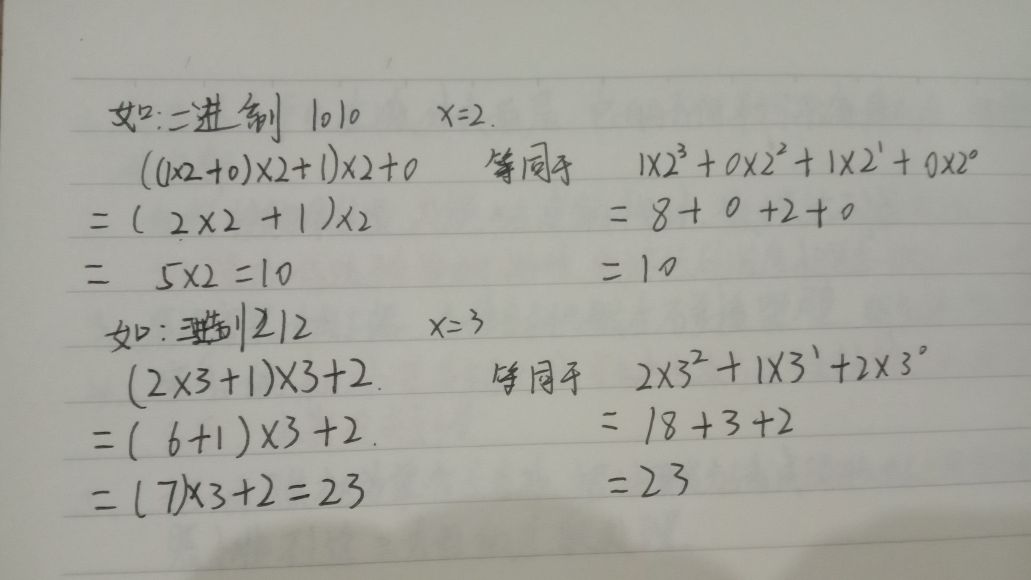 如:二进制 1010 x=2.
((1×2+0)×2+1)×2+0 等同于 1×2³+0×2²+1×2¹+0×2⁰
=( 2×2 +1)×2 =8+0+2+0
= 5×2=10 =10
如:三进制212 x=3
(2×3+1)×3+2. 等同于 2×3²+1×3¹+2×3⁰
=( 6+1)×3+2. =18+3+2
=(7)×3+2=23 =23